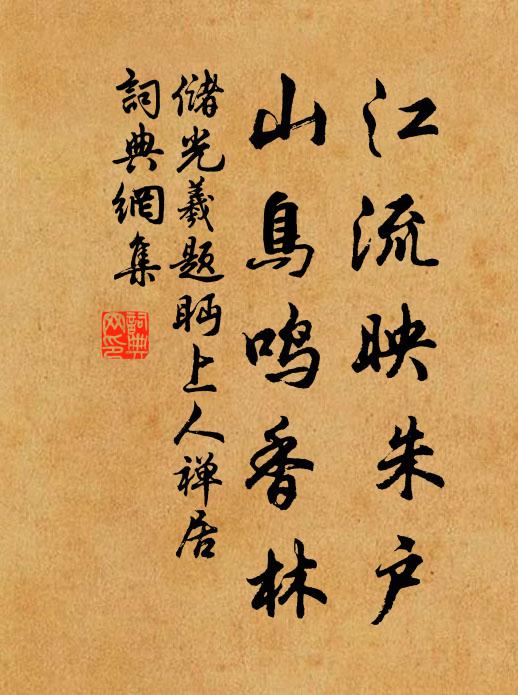 江流映朱户
山鳥鸣香林
储光羲题眄上人禅居
詞典網集
詞典网印